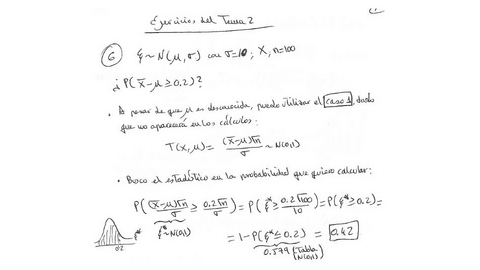 Ejercicios del Tema 2
⑥ ξ ~ N(μ, σ) con σ=10; X, n=100
¿P(X̄-μ ≥ 0.2)?
• A pesar de que μ es desconocida, puedo utilizar el caso 1, dado
que no aparecerá en los cálculos:
T(X, μ) = (X̄-μ)√n / σ ~ N(0,1)
• Busco el estadístico en la probabilidad que quiero calcular:
P((X̄-μ)√n / σ ≥ 0.2√n / σ) = P(ξ* ≥ 0.2√100 / 10) = P(ξ* ≥ 0.2) =
ξ* ~ N(0,1)
= 1 - P(ξ* ≤ 0.2) = 0.42
0.579 (Tabla N(0,1))
0.2 ξ*